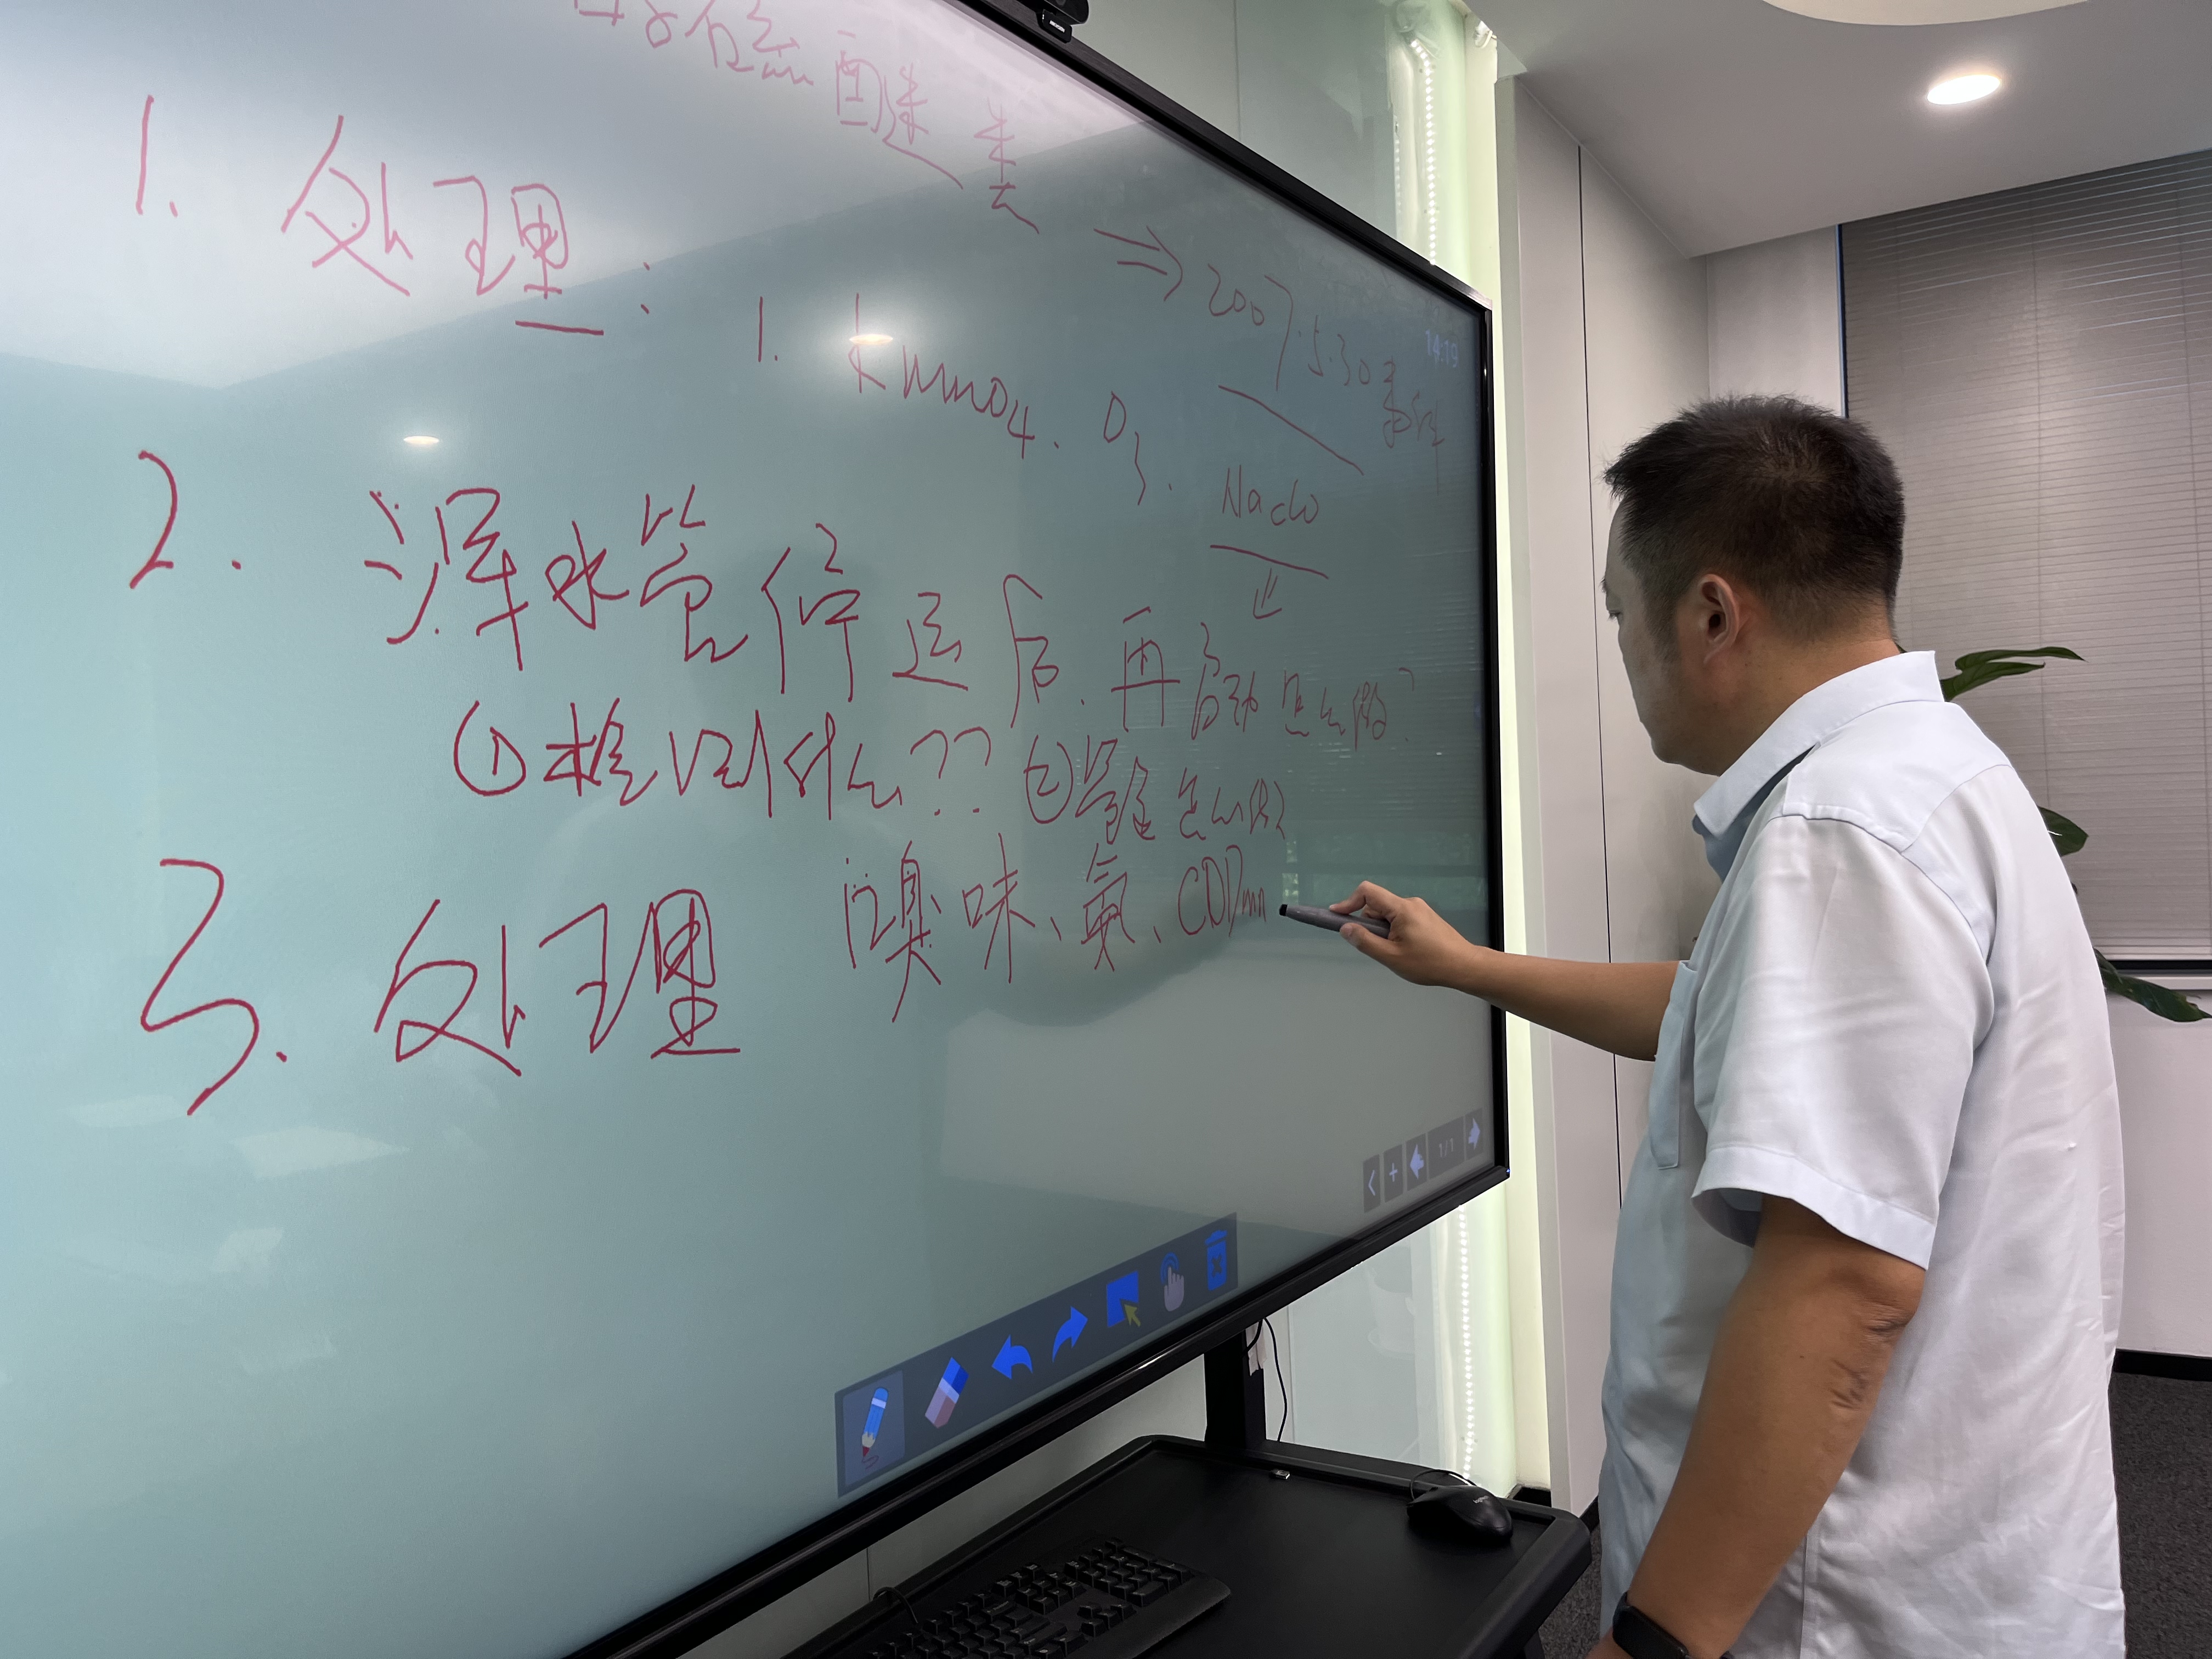 硫醚类
⇒ 2007.5.30事件
14:19
1. 处理:
1. kmno4. O3.
Naclo
2. 浑水管停运后.再启动怎么做?
①检测什么?? ②管道怎么做
3. 处理
嗅味、氨、CODmn
1/1